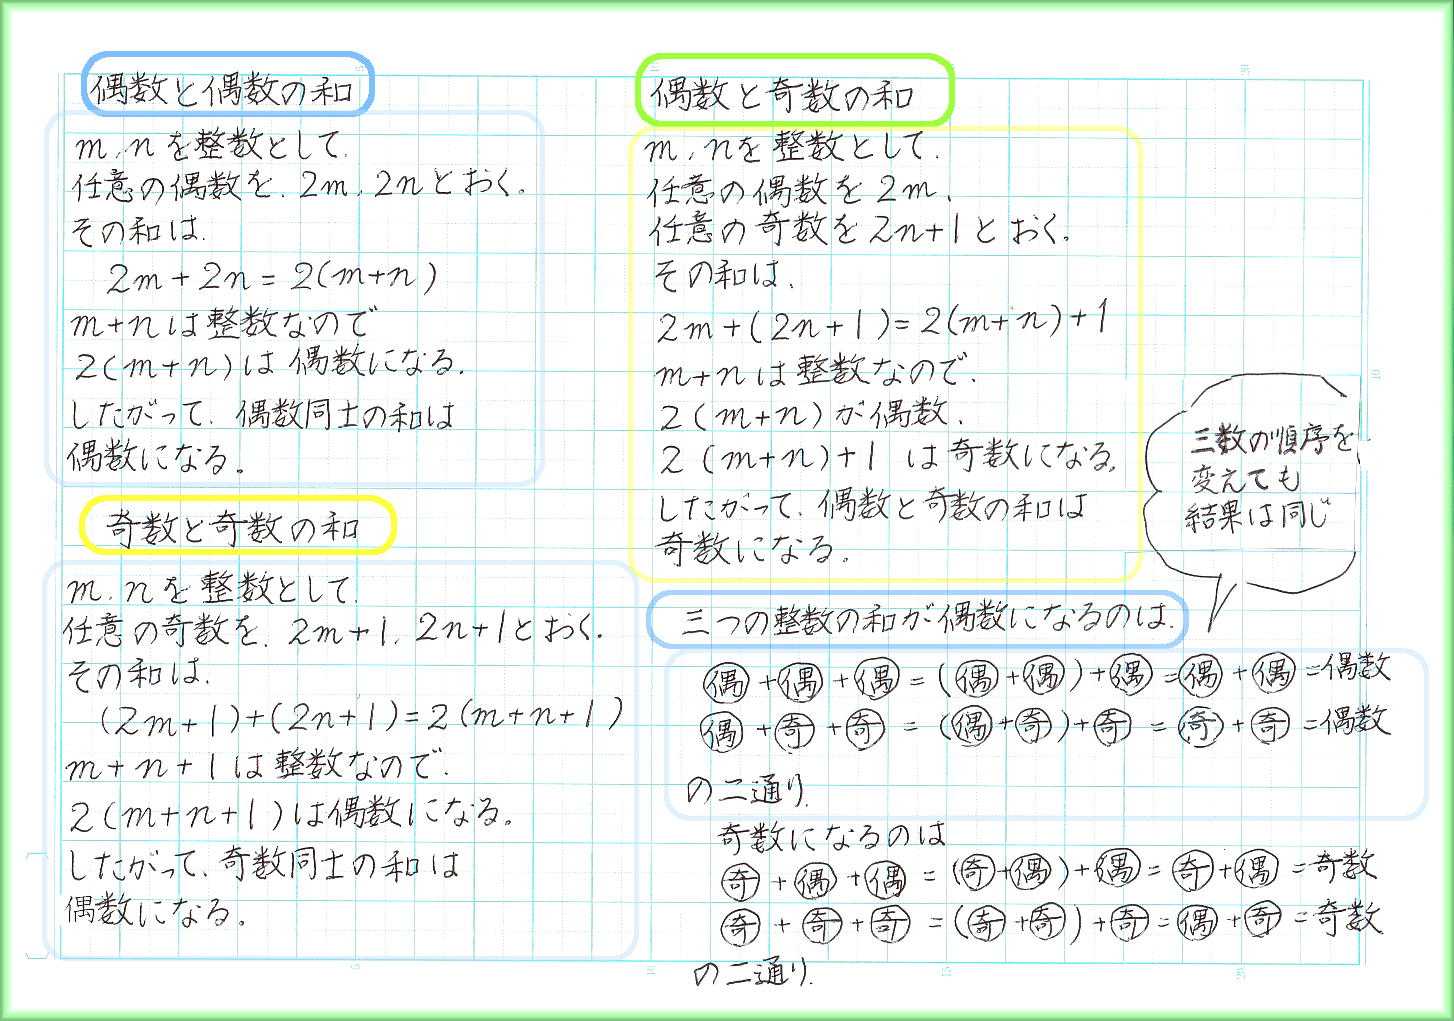 偶数と偶数の和
m, nを整数として、
任意の偶数を、2m, 2nとおく。
その和は、
2m+2n=2(m+n)
m+nは整数なので
2(m+n)は偶数になる。
したがって、偶数同士の和は
偶数になる。
奇数と奇数の和
m, nを整数として、
任意の奇数を、2m+1, 2n+1とおく。
その和は、
(2m+1)+(2n+1)=2(m+n+1)
m+n+1は整数なので、
2(m+n+1)は偶数になる。
したがって、奇数同士の和は
偶数になる。
偶数と奇数の和
m, nを整数として、
任意の偶数を2m、
任意の奇数を2n+1とおく。
その和は、
2m+(2n+1)=2(m+n)+1
m+nは整数なので、
2(m+n)が偶数、
2(m+n)+1は奇数になる。
したがって、偶数と奇数の和は
奇数になる。
三数の順序を
変えても
結果は同じ
三つの整数の和が偶数になるのは、
偶+偶+偶=(偶+偶)+偶=偶+偶=偶数
偶+奇+奇=(偶+奇)+奇=奇+奇=偶数
の二通り、
奇数になるのは
奇+偶+偶=(奇+偶)+偶=奇+偶=奇数
奇+奇+奇=(奇+奇)+奇=偶+奇=奇数
の二通り、